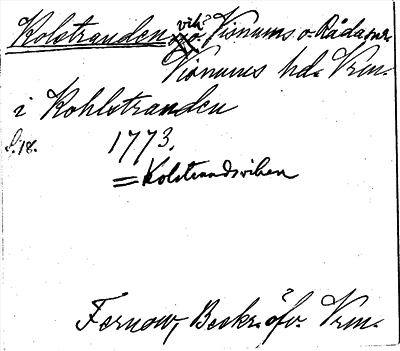 Kolstranden vik? Visnums o. Råda snr.
Visnums hd. Vrm.
i Kohlstranden
S. 18. 1773.
= Kolstrandsviken
Fernow, Beskr. öfv. Vrm.